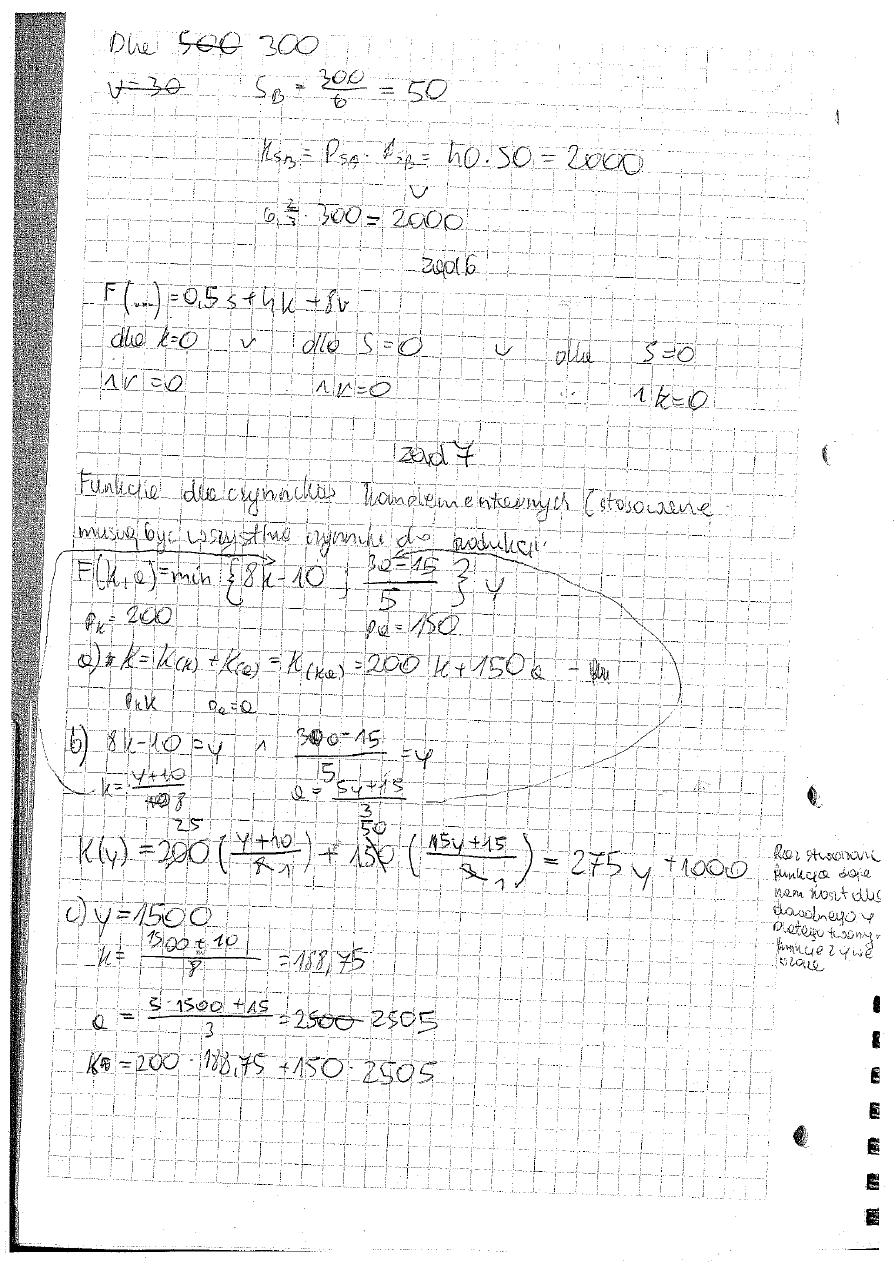 Dla 500 300
v=30 S_B = 300/6 = 50
K_SB = P_SB · = 40·50 = 2000
v
6 2/3 · 300 = 2000
zad 6
F(...) = 0,5s + 4k + 8v
dla k=0 v dla S=0 v dla S=0
∧ v=0 ∧ v=0 ∧ k=0
zad 7
Funkcja dla czynników komplementarnych (stosowane
muszą być wszystkie czynniki do produkcji.
F(k,a) = min {8k-10 ; 3a-15/5} y
p_k = 200 p_a = 150
a) K = K(k) + K(a) = K(k,a) = 200 k + 150 a -
p_k k p_a = a
b) 8k-10 = y ∧ 3a-15/5 = y
k = y+10/8 a = 5y+15/3
25 50
K(y) = 200 (y+10/8 1) + 150 (5y+15/3 1) = 275 y + 1000
Raz stworzona
funkcja daje
nam koszt dla
dowolnego y
Dlatego
funkcję z y
c) y = 1500
k = 1500+10/8 = 188,75
a = 5·1500+15/3 = 2500 2505
K = 200 · 188,75 + 150 · 2505